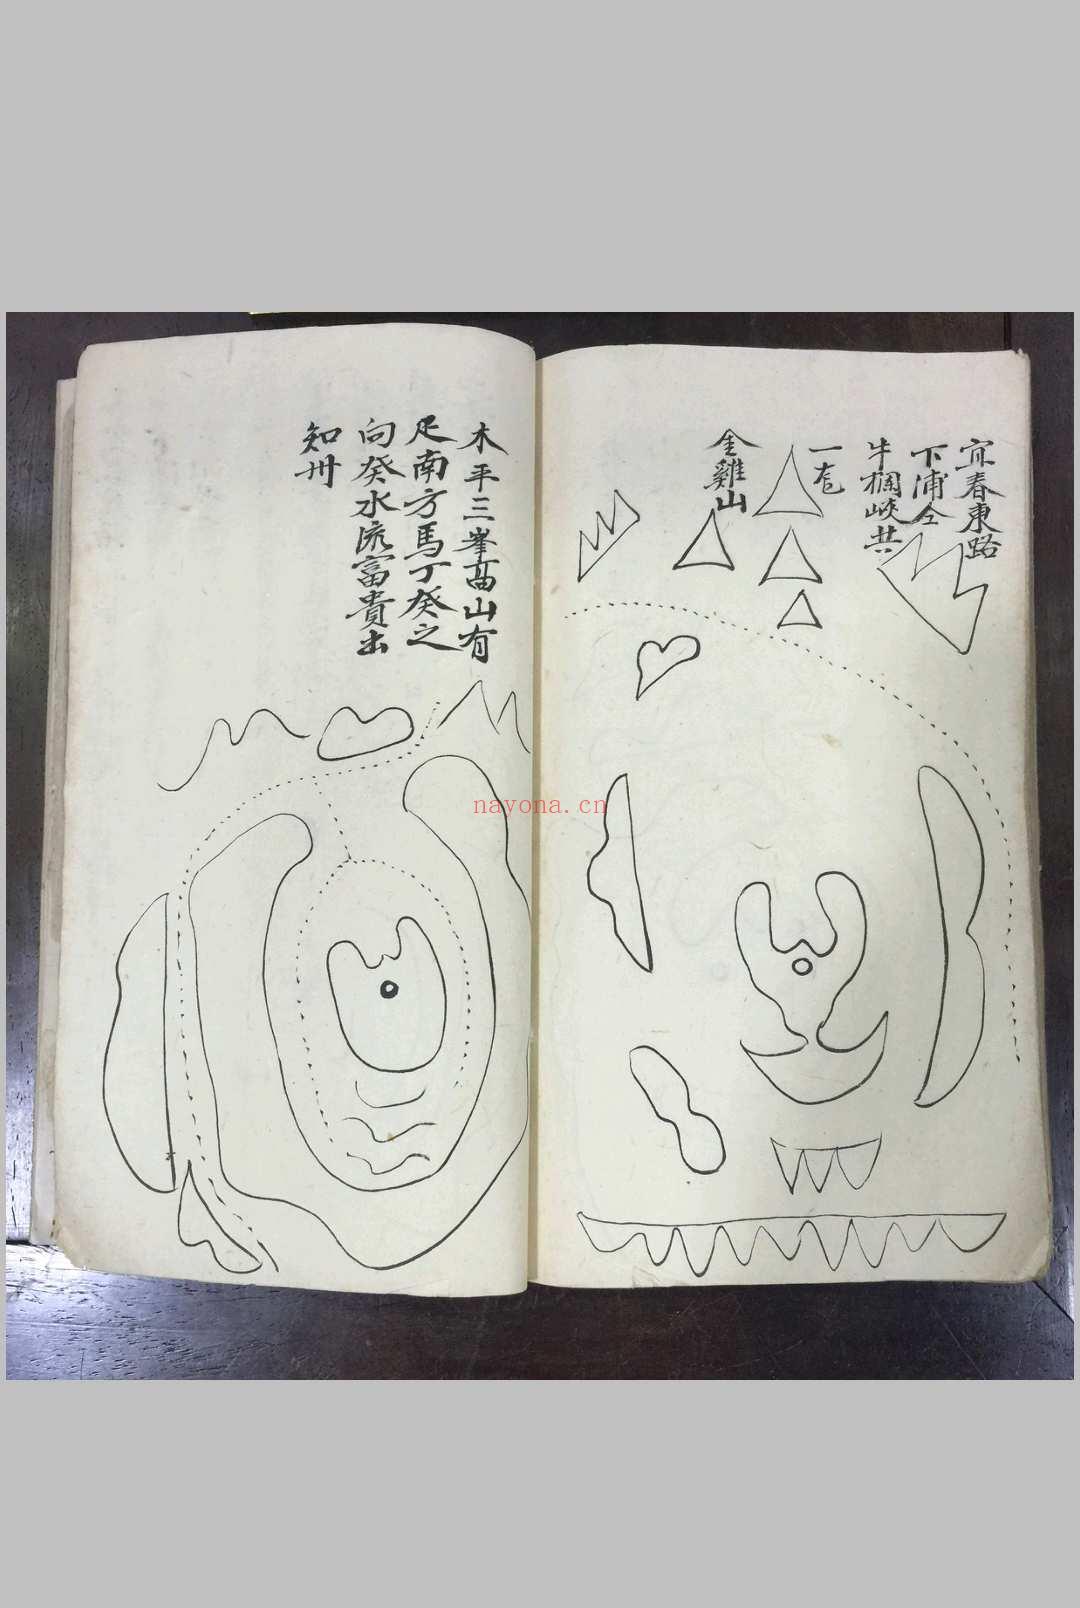 宜春東路
下浦仝
牛欄峽共
一
金雞山
木平三峯高山有
疋南方馬丁癸之
向癸水流富貴出
知州
nayona.cn